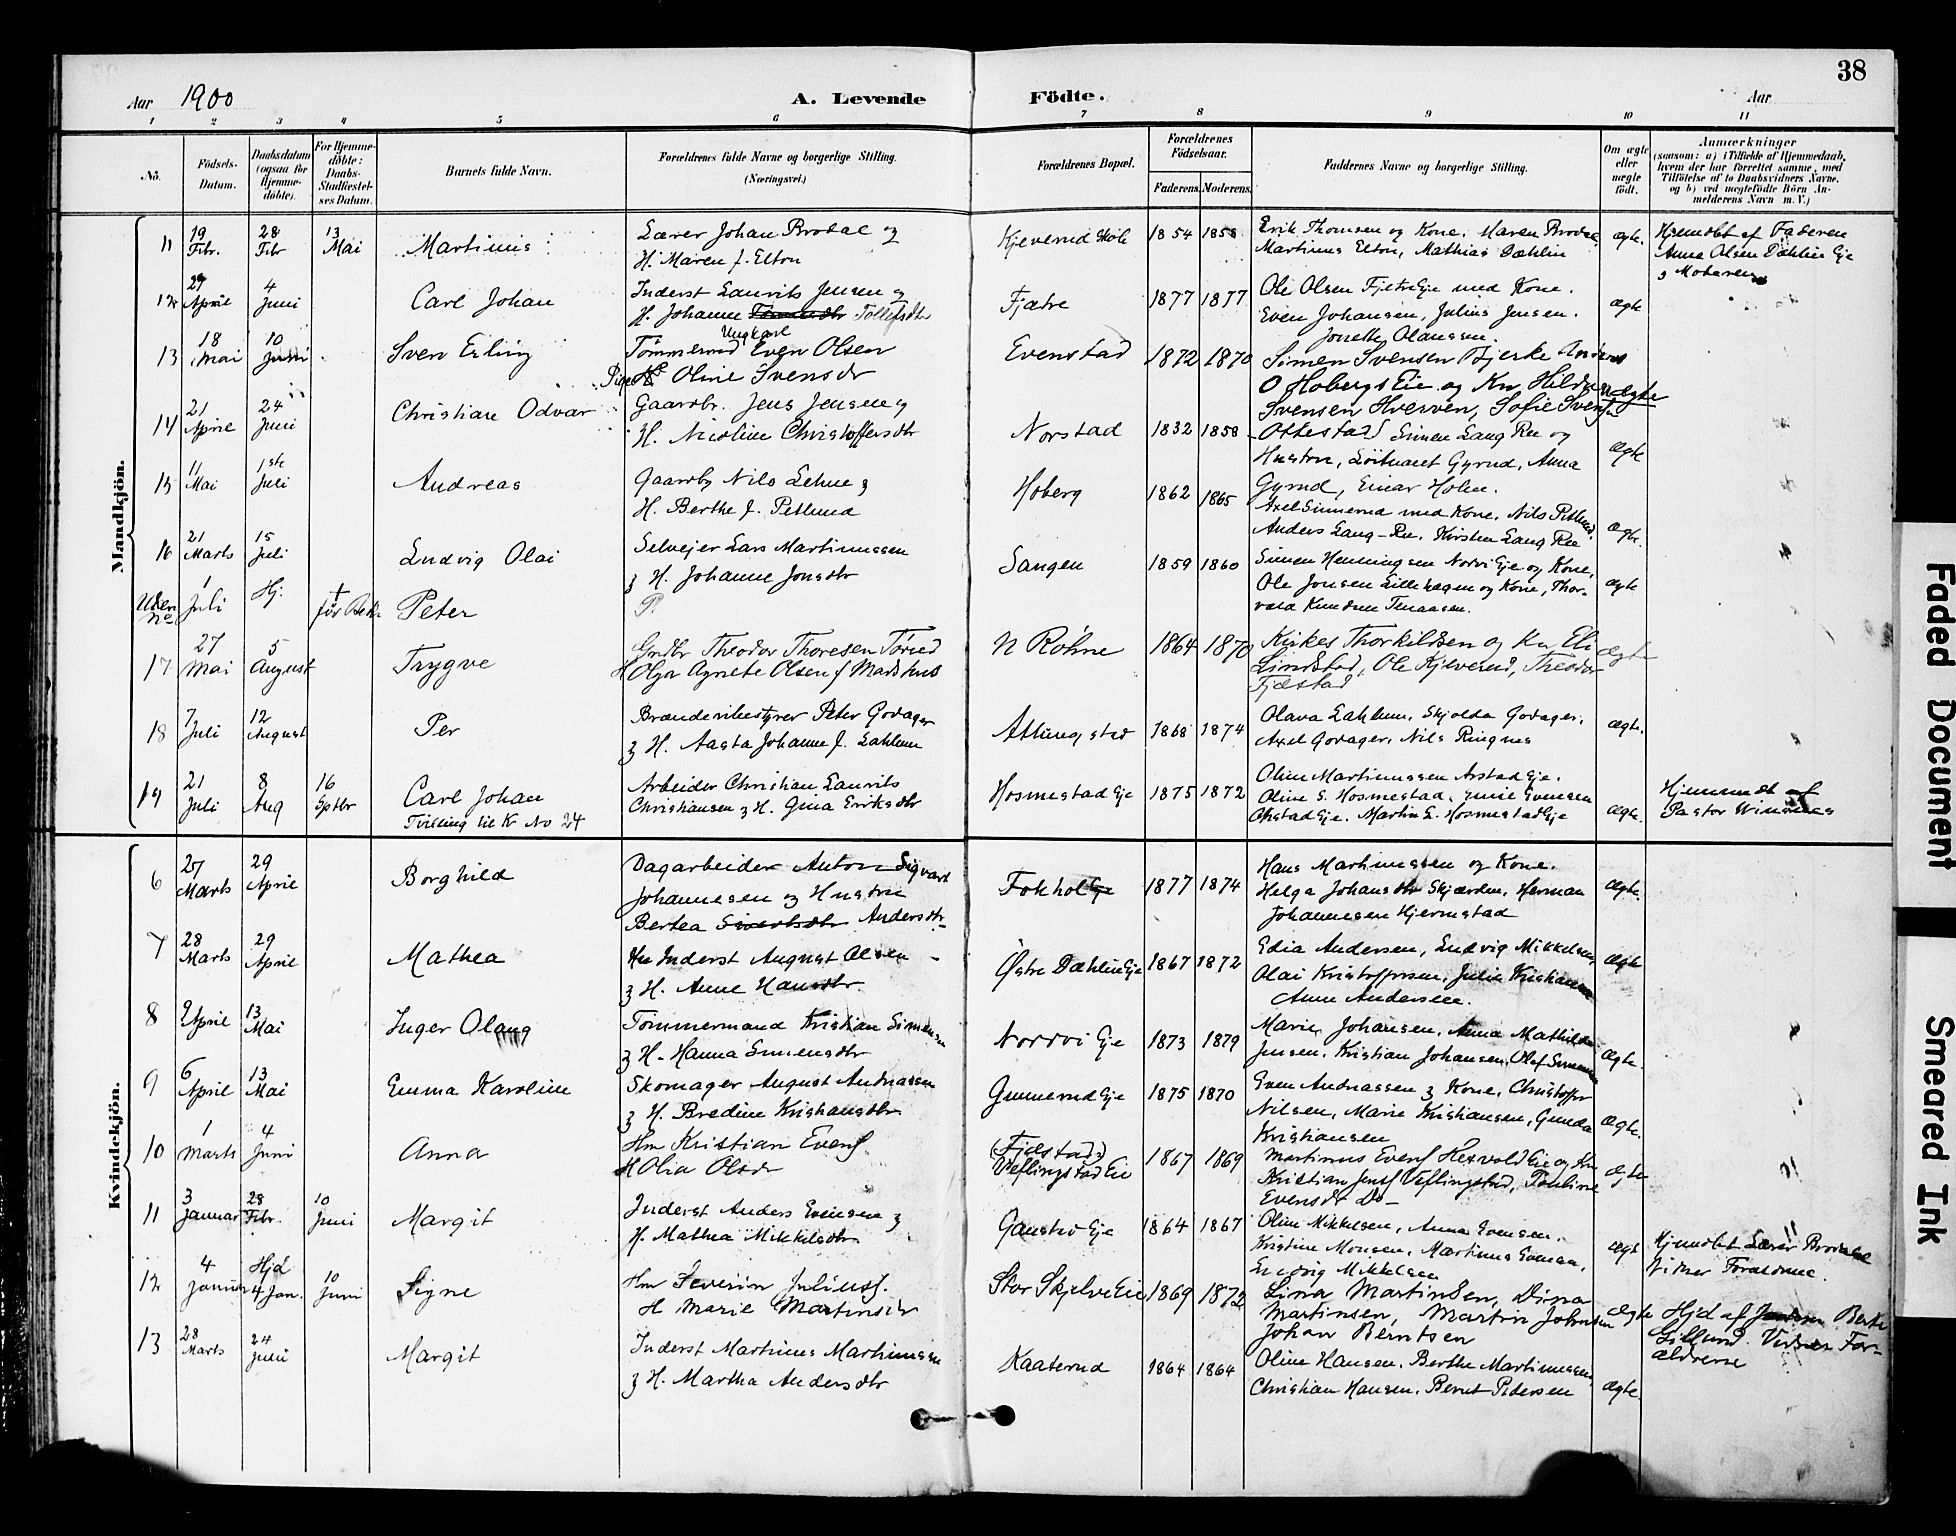 38
Aar 1900
A. Levende Födte.
Aar
1 2 3 4 5 6 7 8 9 10 11
No.
Födsels-Datum.
Daabsdatum (ogsaa for Hjemme-döbte).
For Hjemme-döbte: Daabs-Stadfæstel-ses Datum.
Barnets fulde Navn.
Forældrenes fulde Navne og borgerlige Stilling.
(Næringsvei.)
Forældrenes Bopæl.
Forældrenes Födselsaar.
Faderens. Moderens.
Faddernes Navne og borgerlige Stilling.
Om ægte eller uægte födt.
Anmærkninger
(saasom: a) i Tilfælde af Hjemmedaab, hvem der har forrettet samme, med Tilföielse af to Daabsvidners Navne, og b) ved uægtefödte Börn An-melderens Navn m. V.)
Mandkjön.
11 19 Febr. 28 Febr 13 Mai Martinus Lærer Johan Brodal og
H. Maren f. Elton
Kjeverud Skole 1854 1858 Erik Thomsen og Kone. Maren Brodal
Martinus Elton, Mathias Dæhlin ægte.
Hjemdbt af Faderen
Anna Olsen Dæhlin Eje
12 29 April 4 Juni Carl Johan Inderst Laurits Jensen og
H. Johanne Tollefsdtr
Fjætre 1877 1877 Ole Olsen Fjetre Eje med Kone.
Even Johansen, Julius Jensen.
Jonette Olaussen. ægte
13 18 Mai 10 Juni Sven Erling Ungkarl
Tömmermd Even Olsen
Pige Oline Svensdr
Evenstad 1872 1870 Simen Svensen Bjerke Anders
O Hobergs Eie og Kv Hilda
Svensen Hverven, Sofie Svens
Ottestad uægte
14 21 April 24 Juni Christian Odvar Gaardbr. Jens Jensen og
H. Nicoline Christoffersdtr
Norstad 1832 1858 Simen Lang Ree og
Hustru, Löitnant Gyrud, Anna
Gyrud, Einar Holm. ægte
15 11 Mai 1ste Juli Andreas Gaardbr Nils Lehne &
H. Berthe f. Petlund
Hoberg 1862 1865 Axel Sinnerud med Kone. Nils Petlund,
Anders Lang-Ree. Kirsten Lang Ree ægte.
16 21 Marts 15 Juli Ludvig Olai Selvejer Lars Martinussen
& H. Johanne Jonsdtr
Sangen 1859 1860 Simen Henningsen Nordvi Eje og Kone,
Ole Jonsen Lillehagen og Kone, Thor-
vald Knudsen ægte
Uden No 1 Juli Hj. † för Bekr Peter P.
17 27 Mai 5 August Trygve Grdbr Theodor Thoresen
H Olga Agnete Olsen f Madshus
N Röhne 1864 1870 Kirkes Thorkildsen og Kv, Eli
Lindstad, Ole Kjeverud, Theodor
Fjæstad ægte
18 7 Juli 12 August Per Brænderibestyrer Peter Godager
& H. Aasta Johanne f. Lahlum
Atlungstad 1868 1874 Olava Lahlum. Skjolda Godager.
Axel Godager. Nils Ringnes ægte.
19 21 Juli 8 Aug 16 Sptbr Carl Johan
Tvilling til K No 24
Arbeider Christian Laurits
Christiansen & H. Gina Eriksdtr
Hosmestad Eje 1875 1872 Oline Martinussen Arstad Eje.
Oline E. Hosmestad. Evensen
Opstad Eje. Martin E. Hosmestad Eje ægte.
Hjemmedt af
Pastor Winsnes
Kvindekjön.
6 27 Marts 29 April Borghild Dagarbeider Anton Sigvart
Johannesen og Hustru
Bertea Sivertsdtr Andersdtr
Fokhol Eje 1877 1874 Hans Martinussen og Kone.
Helga Johansdtr Skjærden. Herman
Johannesen Hjermstad ægte.
7 28 Marts 29 April Mathea Inderst August Olsen
& H. Anne Hansdtr
Østre Dæhlin Eje 1867 1872 Edia Andersen, Ludvig Mikkelsen,
Olai Kristoffersen, Julie Kristiansen
Anne Andersen. ægte
8 9 April 13 Mai Inger Olaug Tömmermand Kristian Simensen
& H. Hanna Simensdtr
Nordvi Eje 1873 1879 Marie Johansen. Anna Mathilde
Jensen. Kristian Johansen. Olaf Simensen ægte.
9 6 April 13 Mai Emma Karoline Skomager August Andreassen
& H. Bredine Kristiansdtr
Gunnerud Eje 1875 1870 Even Andreassen & Kone. Christoffer
Nilsen, Marie Kristiansen, Gunda
Kristiansen ægte.
10 1 Marts 4 Juni Anna Hm Kristian Evens
H Olia Olsdr
(Fjdstad)
Veflingstad Eie 1867 1869 Martinus Evens Hexvold Eie og Kv
Kristian Jens Veflingstad, Pauline
Evensdr Do- ægte
11 3 Januar 28 Febr. 10 Juni Margit Inderst Anders Evensen &
H. Mathea Mikkelsdtr
Gaustad Eje 1864 1867 Oline Mikkelsen, Anna Evensen.
Kristine Monsen, Martinus Evensen,
Ludvig Mikkelsen ægte
Hjemdbt Lærer Brodal
Vidner Forældrene.
12 4 Januar Hjd 4 Jan. 10 Juni Signe Hm Severin Juliuss.
H Marie Martinsdr
Stor Skjelve Eie 1869 1872 Lina Martinsen, Dina
Martinsen, Martin Johnsen
Johan Berntsen ægte
Hjd af Berte
Gillund. Vidner For-
ældrene
13 28 Marts 24 Juni Margit Inderst Martinus Martinussen
& H. Martha Andersdtr
Kaaterud 1864 1864 Oline Hansen. Berthe Martinussen,
Christian Hansen. Bernt Pedersen ægte.
Faded Document
Smeared Ink